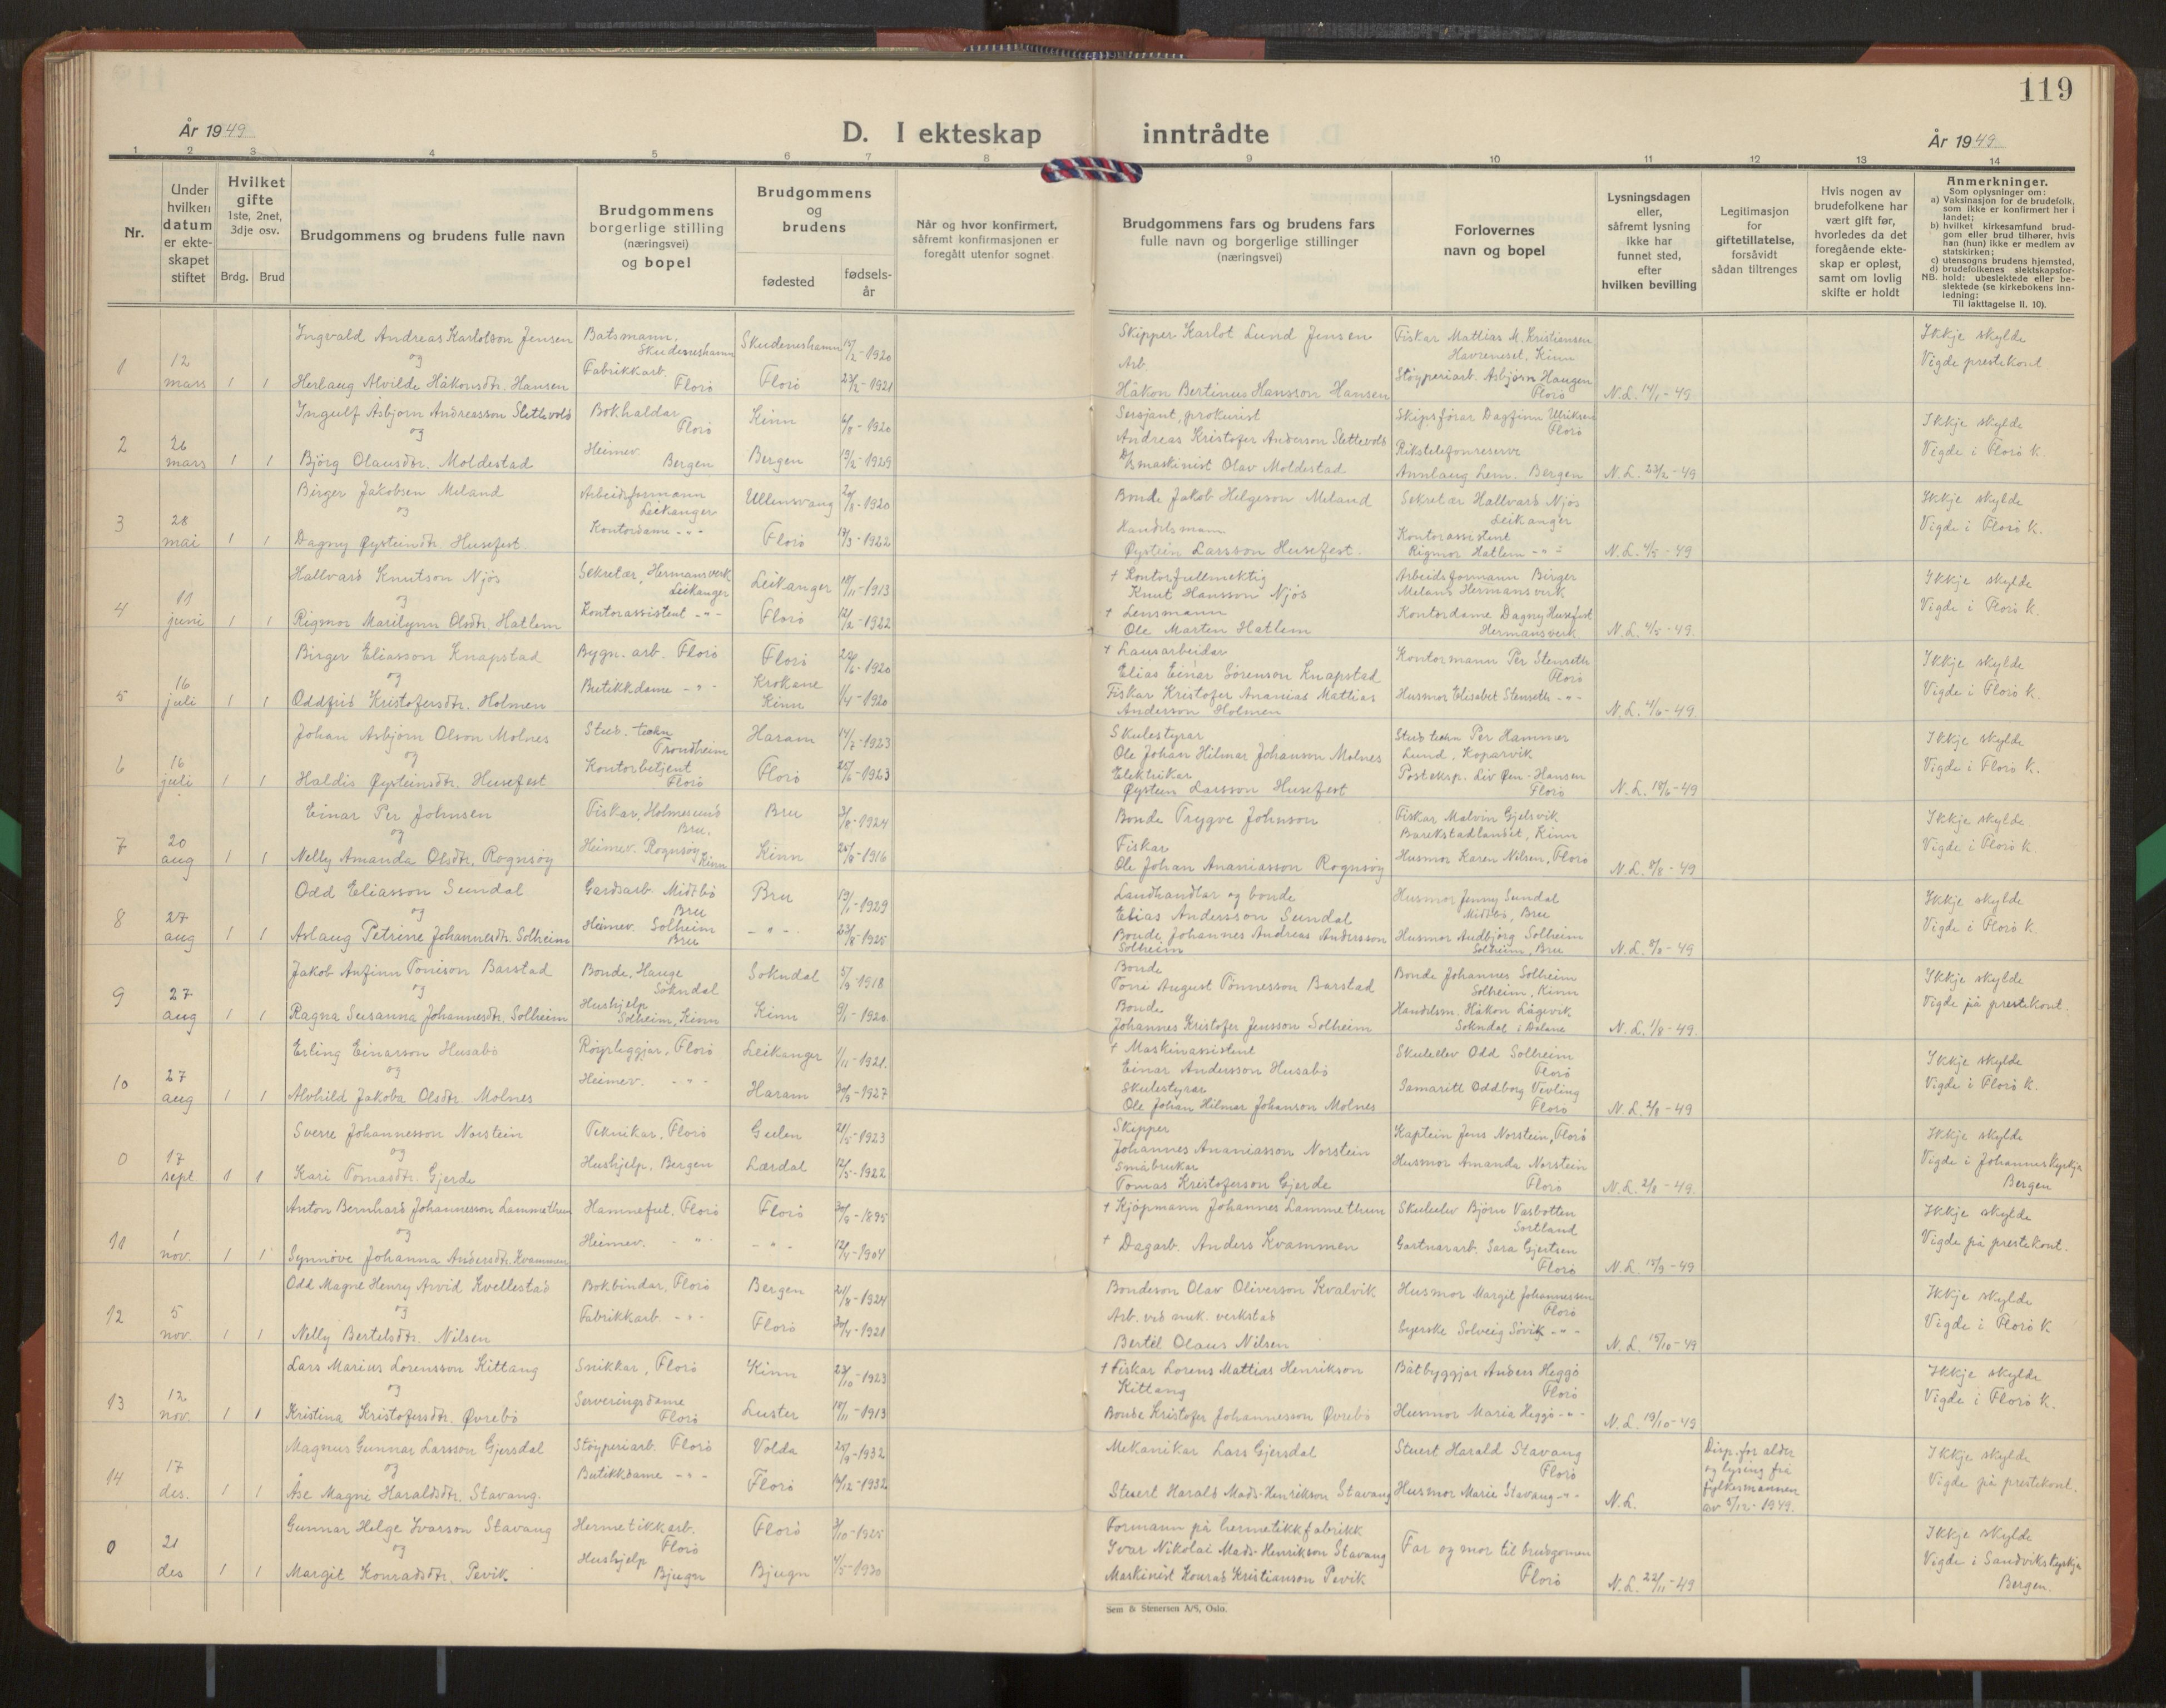 119
År 1949
D. I ekteskap inntrådte
År 1949
1 2 3 4 5 6 7 8 9 10 11 12 13 14
Nr.
Under hvilken datum er ekteskapet stiftet
Hvilket gifte 1ste, 2net, 3dje osv.
Brdg. Brud
Brudgommens og brudens fulle navn
Brudgommens borgerlige stilling (næringsvei) og bopel
Brudgommens og brudens
fødested
fødselsår
Når og hvor konfirmert, såfremt konfirmasjonen er foregått utenfor sognet
Brudgommens fars og brudens fars fulle navn og borgerlige stillinger (næringsvei)
Forlovernes navn og bopel
Lysningsdagen eller, såfremt lysning ikke har funnet sted, efter hvilken bevilling
Legitimasjon for giftetillatelse, forsåvidt sådan tiltrenges
Hvis nogen av brudefolkene har vært gift før, hvorledes da det foregående ekteskap er opløst, samt om lovlig skifte er holdt
Anmerkninger.
Som oplysninger om:
a) Vaksinasjon for de brudefolk, som ikke er konfirmert her i landet;
b) hvilket kirkesamfund brudgom eller brud tilhører, hvis han (hun) ikke er medlem av statskirken;
c) utensogns brudens hjemsted,
d) brudefolkenes slektskapsforhold: ubeslektede eller beslektede (se kirkebokens innledning:
NB.
Til iakttagelse II, 10).
1 12 mars 1 1
Ingvald Andreas Karlotson Jensen og Herlaug Alvilde Håkonsdtr. Hansen
Båtsmann, Skudeneshamn
Fabrikkarb. Florø
Skudeneshamn 15/2-1920
Florø 23/2-1921
Skipper Karlot Lund Jensen
Arb. Håkon Bertinus Hansson Hansen
Fiskar Mattias M. Kristiansen Havreneset, Kinn
Støyperiarb. Asbjørn Haugen Florø
N.L. 14/1-49
Ikkje skylde
Vigde prestekont
2 26 mars 1 1
Ingulf Asbjørn Andreasson Slettevold og Bjørg Olausdtr. Moldestad
Bokhaldar Florø
Heimev. Bergen
Kinn 6/8-1920
Bergen 19/2-1929
Sersjant, prokurist
Andreas Kristofer Anderson Slettevold
maskinist Olav Moldestad
Skipsførar Dagfinn Ulriksen Florø
Rikstelefonreserve Annlaug Lem. Bergen
N.L. 23/2-49
Ikkje skylde
Vigde i Florø K.
3 28 mai 1 1
Birger Jakobsen Meland og Dagny Øysteindtr. Husefest
Arbeidsformann Leikanger
Kontordame -"-
Ullensvang 20/8-1920
Florø 17/3-1922
Bonde Jakob Helgeson Meland
Handelsmann Øystein Larsson Husefest.
Sekretær Hallvard Njøs Leikanger
Kontorassistent Rigmor Hatlem -"-
N.L. 4/5-49
Ikkje skylde
Vigde i Florø K.
4 11 juni 1 1
Hallvard Knutson Njøs og Rigmor Marilynn Olsdtr. Hatlem
Sekretær, Hermansverk Leikanger
Kontorassistent -"-
Leikanger 18/11-1913
Florø 12/2-1922
† Kontorfullmektig Knut Hansson Njøs
† Lensmann Ole Marten Hatlem
Arbeidsformann Birger Meland Hermansverk
Kontordame Dagny Husefest Hermansverk
N.L. 4/5-49.
Ikkje skylde
Vigde i Florø K.
5 16 juli 1 1
Birger Eliasson Knapstad og Oddfrid Kristofersdtr. Holmen
Bygn. arb. Florø
Butikkdame -"-
Florø 22/6-1920
Krokane Kinn 1/4-1920
† Lausarbeidar Elias Einar Sørenson Knapstad
Fiskar Kristofer Ananias Mattias Anderson Holmen
Kontormann Per Stenseth Florø
Husmor Elisabet Stenseth -"-
N.L. 4/6-49
Ikkje skylde
Vigde i Florø K.
6 16 juli 1 1
Johan Asbjørn Olson Molnes og Haldis Øysteinsdtr. Husefest
Stud. techn Trondheim
Kontorbetjent Florø
Haram 14/7-1923
Florø 25/6-1923
Skulestyrar Ole Johan Hilmar Johanson Molnes
Elektrikar Øystein Larsson Husefest
Stud techn Per Hammer Lund, Koparvik
Posteksp. Liv Øen-Hansen Florø
N.L. 18/6-49
Ikkje skylde
Vigde i Florø K.
7 20 aug 1 1
Einar Per Johnsen og Nelly Amanda Olsdtr. Rognsøy
Fiskar, Holmesund Bru.
Heimev. Rognsøy Kinn
Bru 3/8-1924
Kinn 26/8-1916
Bonde Trygve Johnson
Fiskar Ole Johan Ananiasson Rognsøy
Fiskar Malvin Gjelsvik Barekstadlandet, Kinn
Husmor Karen Nilsen, Florø
N.L. 8/8-49
Ikkje skylde
Vigde i Florø K.
8 27 aug 1 1
Odd Eliasson Sundal og Aslaug Petrine Johannesdtr. Solheim
Gardsarb. Midtbø Bru
Heimev. Solheim Bru
Bru 19/1-1929
-"- 23/8-1925
Landhandlar og bonde Elias Andersson Sundal
Bonde Johannes Andreas Andersson Solheim
Husmor Jenny Sundal Midtbø, Bru
Husmor Audbjørg Solheim Solheim, Bru
N.L. 8/8-49
Ikkje skylde
Vigde i Florø K.
9 27 aug 1 1
Jakob Anfinn Tonison Barstad og Ragna Susanna Johannesdtr. Solheim
Bonde, Hauge Sokndal
Hushjelp Solheim, Kinn
Sokndal 5/9-1918
Kinn 9/1-1920
Bonde Toni August Tønnesson Barstad
Bonde Johannes Kristofer Jensson Solheim
Bonde Johannes Solheim Solheim, Kinn
Handelsm. Håkon Lågevik Sokndal i Dalane
N.L. 1/8-49.
Ikkje skylde
Vigde på prestekont.
10 27 aug 1 1
Erling Einarson Husabø og Alvhild Jakoba Olsdtr. Molnes
Røyrleggjar, Florø
Heimev. -"-
Leikanger 1/11-1921.
Haram 30/9-1927
† Maskinassistent Einar Andersson Husabø
Skulestyrar Ole Johan Hilmar Johanson Molnes
Skuleelev Odd Solheim Florø
Samaritt Oddborg Vevling Florø
N.L. 2/8-49
Ikkje skylde
Vigde i Florø K.
0 17 sept. 1 1
Sverre Johannesson Norstein og Kari Tomasdtr. Gjerde
Teknikar, Florø
Hushjelp, Bergen
Gulen 28/5-1923
Lærdal 12/5-1922
Skipper Johannes Ananiasson Norstein
Småbrukar Tomas Kristoferson Gjerde
Kaptein Jens Norstein, Florø
Husmor Amanda Norstein Florø
N.L. 2/8-49.
Ikkje skylde
Vigde i Johanneskyrkja Bergen
11 1 nov. 1 1
Anton Bernhard Johannesson Lammethun og Synnøve Johanna Andersdtr. Kvammen
Hamnefut, Florø
Heimev. -"-
Florø 30/9-1895
-"- 12/4-1904
† Kjøpmann Johannes Lammethun
† Dagarb. Anders Kvammen
Skuleelev Bjørn Vasbotten Sortland
Gartnararb. Sara Gjertsen Florø
N.L. 15/9-49
Ikkje skylde
Vigde på prestekont.
12 5 nov. 1 1
Odd Magne Henry Arvid Kvellestad og Nelly Bertelsdtr. Nilsen
Bokbindar, Florø
Fabrikkarb. -"-
Bergen 21/8-1924
Florø 30/4-1921
Bondeson Olav Oliverson Kvalvik
Arb. ved mek. verkstad Bertel Olaus Nilsen
Husmor Margit Johannessen Florø
Syerske Solveig Søvik -"-
N.L. 15/10-49
Ikkje skylde
Vigde i Florø K.
13 12 nov. 1 1
Lars Marius Lorensson Kittang og Kristina Kristofersdtr. Øvrebø
Snikkar, Florø
Serveringsdame Florø
Kinn 23/10-1923
Luster 18/11-1913
† Fiskar Lorens Mattias Henrikson Kittang
Bonde Kristofer Johannesson Øvrebø
Båtbyggjar Anders Heggø Florø
Husmor Maria Heggø -"-
N.L. 19/10-49
Ikkje skylde
Vigde i Florø K.
14 17 des. 1 1
Magnus Gunnar Larsson Gjersdal og Åse Magni Haraldsdtr. Stavang.
Støyperiarb. Florø
Butikkdame -"-
Volda 25/9-1932
Florø 16/12-1932
Mekanikar Lars Gjersdal
Stuert Harald Mads-Henrikson Stavang
Stuert Harald Stavang Florø
Husmor Marie Stavang -"-
N.L.
Disp. for alder og lysing frå fylkesmannen av 5/12-1949.
Ikkje skylde
Vigde på prestekont.
0 21 des 1 1
Gunnar Helge Ivarson Stavang og Margit Konradsdtr. Pevik
Hermetikkarb. Florø
Hushjelp Bjugn
Florø 3/10-1925
Bjugn 4/5-1930
Formann på hermetikkfabrikk Ivar Nikolai Mads-Henrikson Stavang
Maskinist Konrad Kristianson Pevik
Far og mor til brudgomen Florø
N.L. 22/11-49
Ikkje skylde
Vigde i Sandvikskyrkja Bergen.
Sem & Stenersen A/S, Oslo.